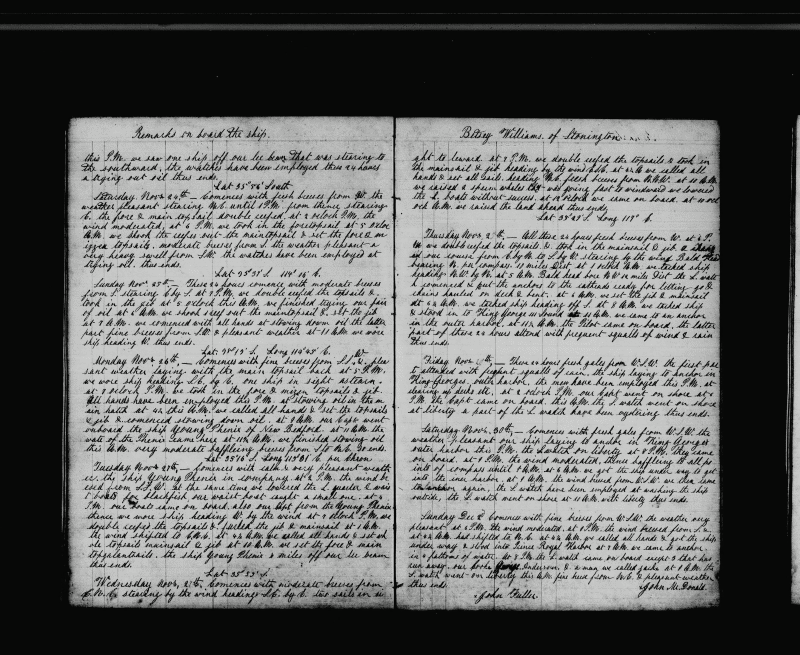 Remarks on board the ship.
this P.M. we saw one ship off our lee beam that was stearing to
the southward, the watches have been employed these 24 hours
trying out oil thus ends.
Lat 35° 56' South
Saturday. Nov 24th Comences with fresh breeses from W. the
weather pleasant stearing until P.M. from thence stearing
E. the fore & main topsail double reefed, at 2 oclock P.M. the
wind moderated, at 4 P.M. we took in the foretopsail at 5 oclock
A.M. we shook the reefes out the maintopsail & set the fore & m
izzen topsails. moderate breeses from S. the weather pleasant a
very heavy swell from S.W. the watches have been employed at
trying oil. thus ends.
Lat 35° 31' S. 114° 16' E.
Sunday Nov 25th These 24 hours comence with moderate breeses
from S. stearing E by S. at 7 P.M. we double reefed the topsails &
took in the jib at 5 oclock this A.M. we finished trying our fair
of oil at 6 A.M. we shook reef out the maintopsail & set the jib
at 7 A.M. we comenced with all hands at stowing down oil the latter
part fine breeses from S.W. & pleasant weather at 11 A.M. we wore
ship heading W. thus ends.
Lat. 35° 15' S. Long 114° 45' E.
Monday Nov 26th Comences with fine breeses from S.S.W. plea
sant weather laying with the main topsail back at 5 P.M.
we wore ship heading S.E. by E. one ship in sight astearn.
at 8 oclock P.M. we took in the fore & mizen topsails & jib.
All hands have been employed this P.M. at stowing oil in the m
ain hatch at 4½ this A.M. we called all hands & set the topsails
& jib & comenced stowing down oil. at 8 A.M. our Capt went
onboard the ship Young Phenix of New Bedford. at 11 A.M. the
wait of the Phenix came here at 11½ A.M. we finished stowing oil
this A.M. very moderate baffleing breeses from S to N.E. so ends.
Lat 35° 15' S. Long 115° 31' E. per Chron.
Tuesday Nov 27th Comences with calm & very pleasant weath
er. the ship Young Phenix in company. at 2 P.M. the wind br
eesed from S.S.W. at the same time we lowered the L quarter & wais
t boats for blackfish our waist boat caught a small one. at 4
P.M. our boats came on board. also our Capt from the Young Phenix
thence we wore ship heading W. by the wind at 7 oclock P.M. we
double reefed the topsails & furled the jib & mainsail at 1 A.M.
the wind shifted to E.N.E. at 4½ A.M. we called all hands & set wh
ole topsails mainsail & jib at 10 A.M. we set the fore & main
topgalantsails. the ship Young Phenix 2 miles off our lee beam
thus ends.
Lat 35° 33' S.
Wednesday Nov 28th Comences with moderate breeses from
E.N.E. stearing by the wind headings S.E. by E. two sails in si
Betsey Williams. of Stonington
ght to leward. at 7 P.M. we double reefed the topsails & took in
the mainsail & jib heading by the wind at 4½ we called all
hands & set all sails. heading fresh breeses from N.N.W. at 10 A.M.
we raised a sperm whale that was going fast to windward we lowered
the L boats without success. at 12 oclock we came on board. at 10 ocl
ock A.M. we raised the land ahead thus ends.
Lat 35° 23' S. Long 117° E.
Thursday Nov 29th All these 24 hours fresh breeses from W. at 6 P.
M we double reefed the topsails & took in the mainsail & jib &
ed our course from E by N to S by W stearing by the wind Bald Head
bearing N. per compass. 15 miles Dist. at 1 oclock A.M. we tacked ship
heading N.W. by N. at 5 A.M. Bald head bore N.W. 12 miles Dist the L watc
h comenced & put the anchors to the catheads ready for letting go &
chains hauled on deck & bent. at 6 A.M. we set the jib & mainsail
at 4 A.M. we tacked ship heading off S. at 8 A.M. we tacked ship
& stood in to King George ss Sound at 11 A.M. we came to an anchor
in the outer harbor. at 11½ A.M. the Pilot came on board, the latter
part of these 24 hours attend with freqent squalls of wind & rain
thus ends.
Friday Nov 30th These 24 hours fresh gales from W.S.W. the first par
t attended with freqent squalls of rain. the ship laying to anchor in
King Georges outer harbor. the men have been employed this P.M. at
clearing up decks etc. at 2 oclock P.M. our Capt went on shore at 5
P.M. the Capt came on board. this A.M. the S. watch went on shore
at liberty a part of the L watch have been oystering thus ends.
Saturday Nov 30th Comences with fresh gales from W.S.W. the
weather pleasant our ship laying to anchor in King Georges
outer harbor this P.M. the L watch on liberty. at 8 P.M. they came
on board. at 9 P.M. the wind moderated, thence baffleing to all po
ints of compass until 4 A.M. at 6 A.M. we got the ship under way to get
into the inner harbor. at 7 A.M. the wind breesed from W.S.W. we then came
to anchor again, the S. watch have been employed at washing the ship
outside, the L. watch went on shore at 10 A.M. with liberty thus ends.
Sunday Dec 2 Comences with fine breeses from W.S.W. the weather very
pleasant at 5 P.M. the wind moderated. at 8 P.M. the wind breesed from S.W.
at 4½ A.M. had shifted to N.E. at 4½ A.M. we called all hands & got the ship
under way & stood into Prince Royal Harbor at 7 A.M. we came to anchor.
in 4 fathoms of water. At 7 P.M. the L watch came on board except 2 that has
run away. our Cook George Anderson & a man we called Jacks at 8 A.M. the
S. watch went on liberty this A.M. fine breese from N.E. & pleasant weather
thus ends
John Fuller
John McDonald